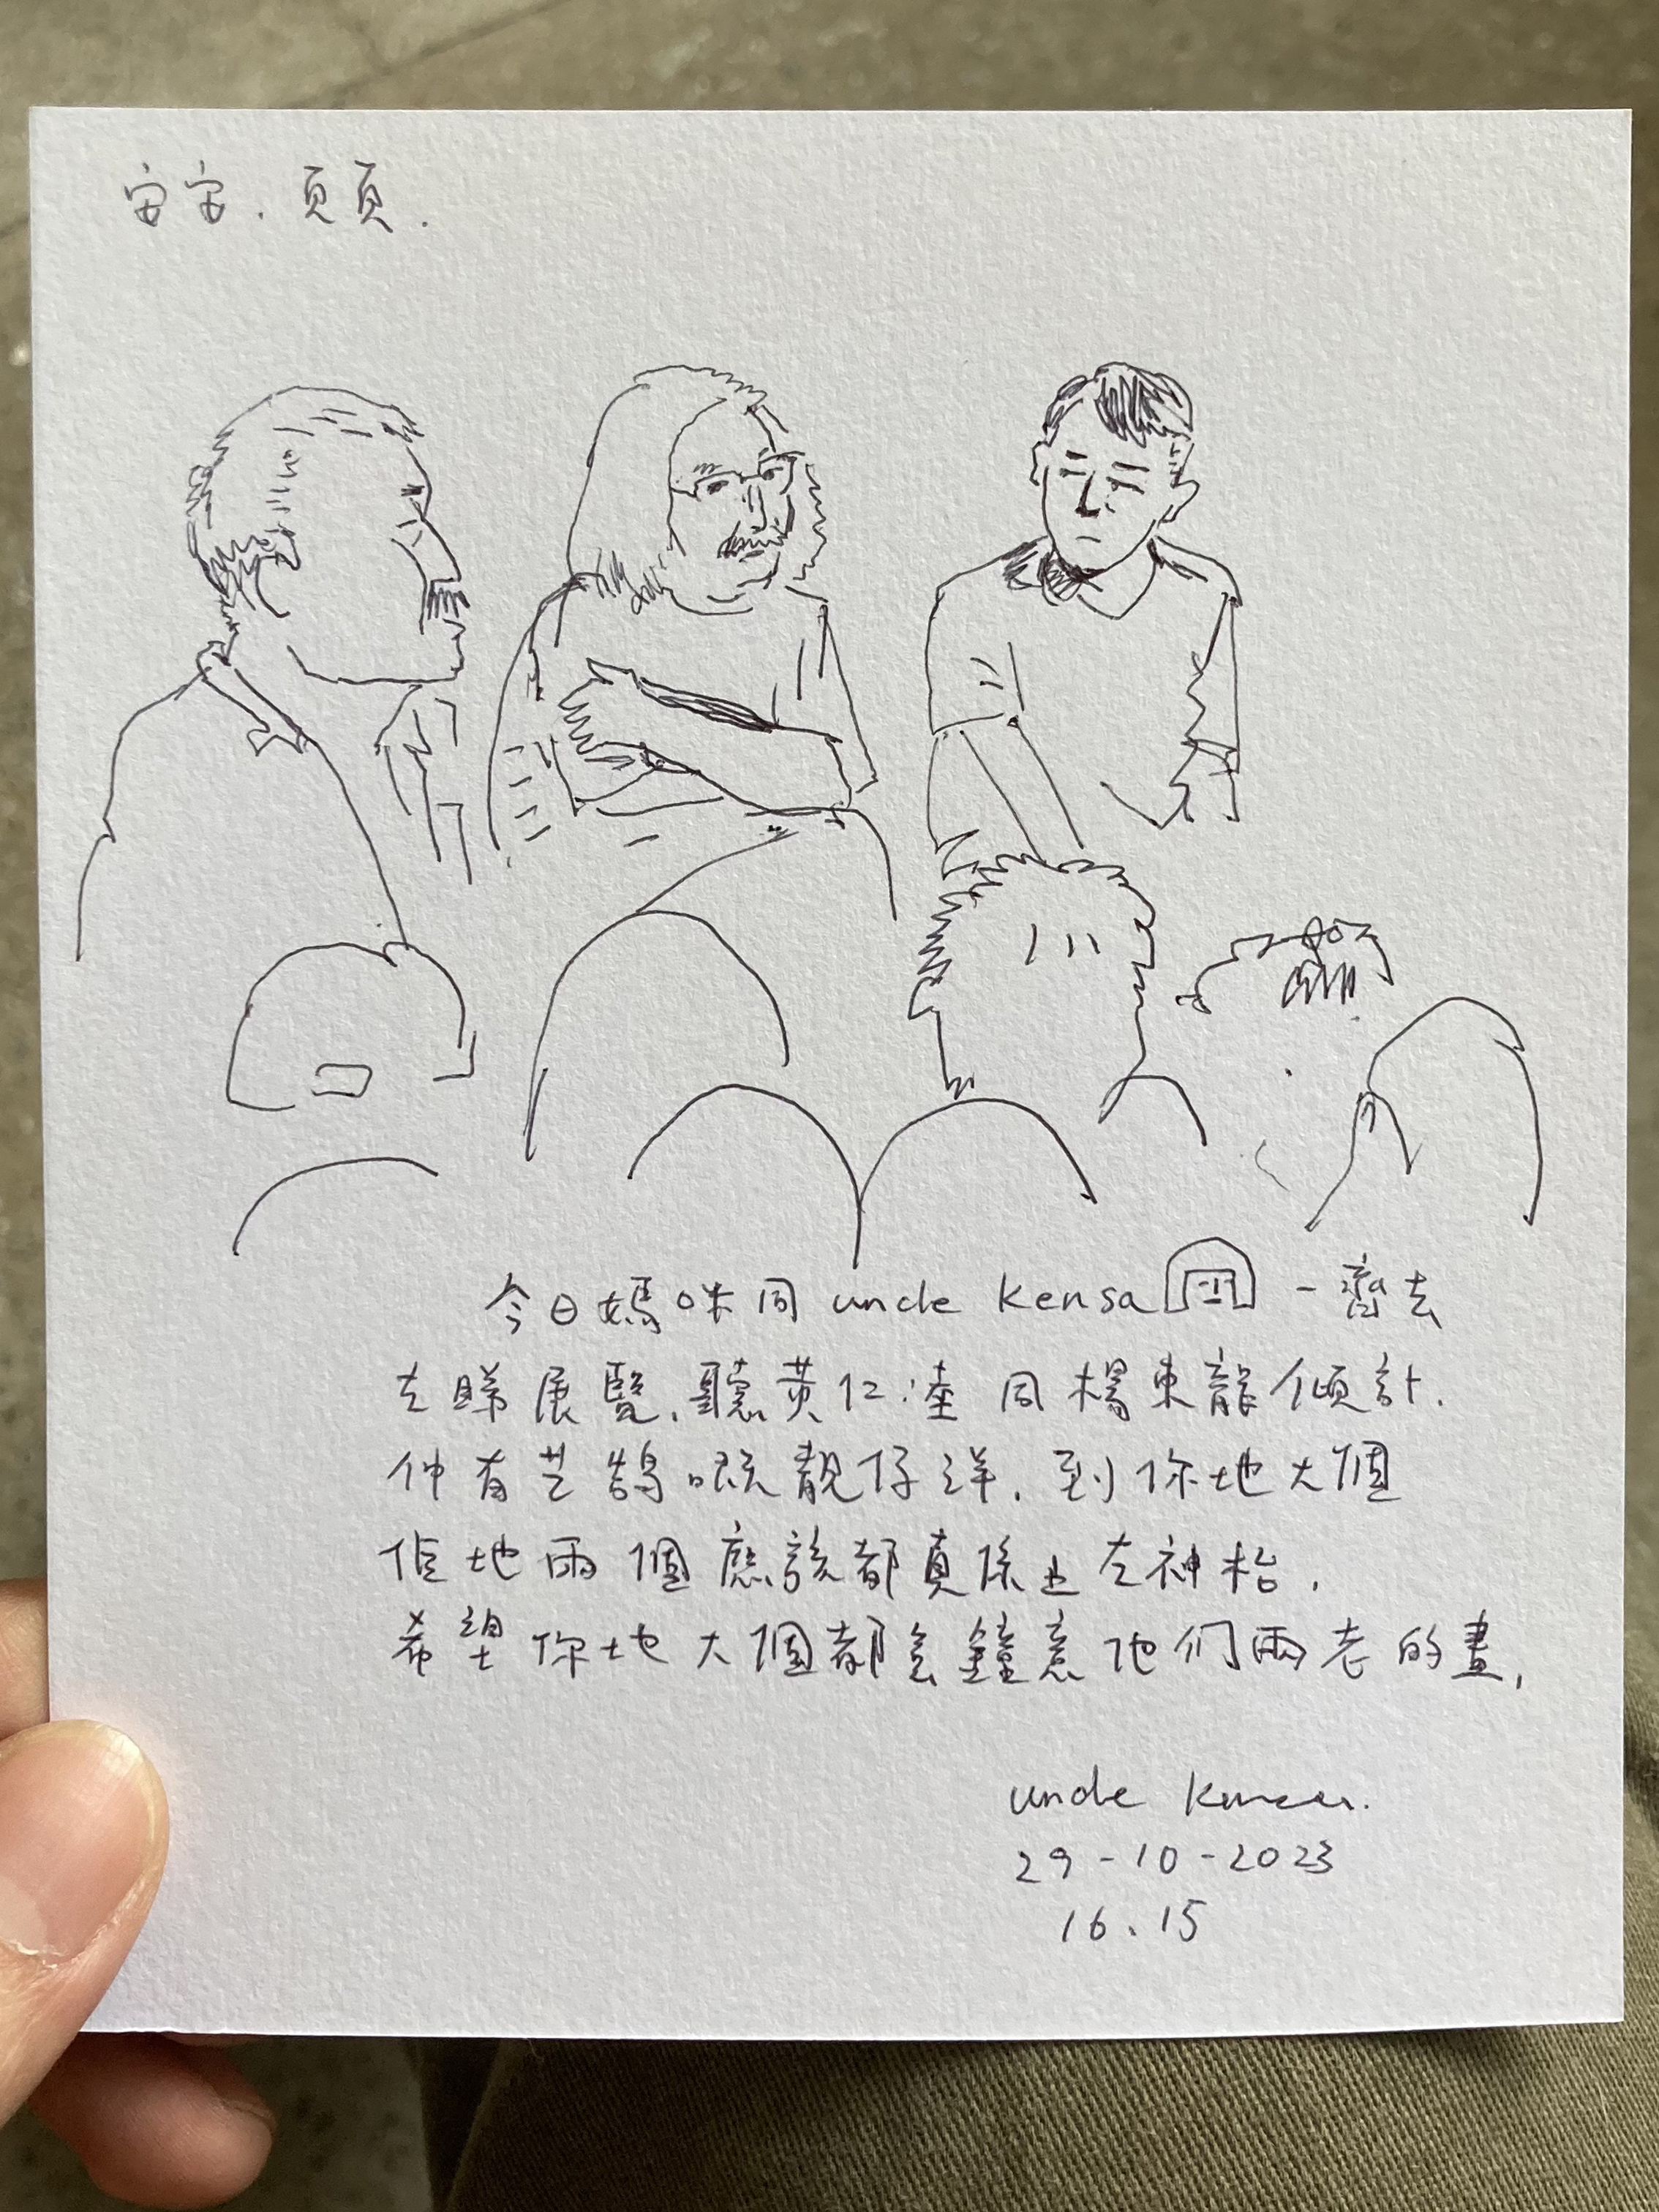 安安．頁頁．
今日媽咪同 uncle Kensa 一齊去
左睇展覽、聽黃仁逵同楊東龍傾計．
仲有芒鵠呢靚仔洋．到你地大個
佢地兩個應該都真係上左神枱．
希望你地大個都會鐘意他们兩老的畫．
uncle
29-10-2023
16.15